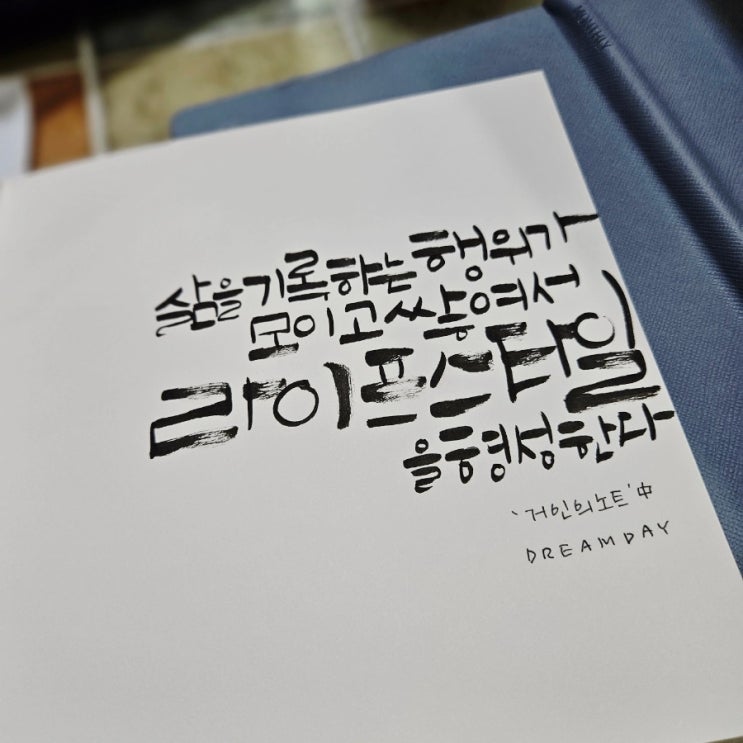 삶을 기록하는 행위가
모이고 쌓여서
라이프스타일
을 형성한다
'거인의 노트' 中
DREAMDAY